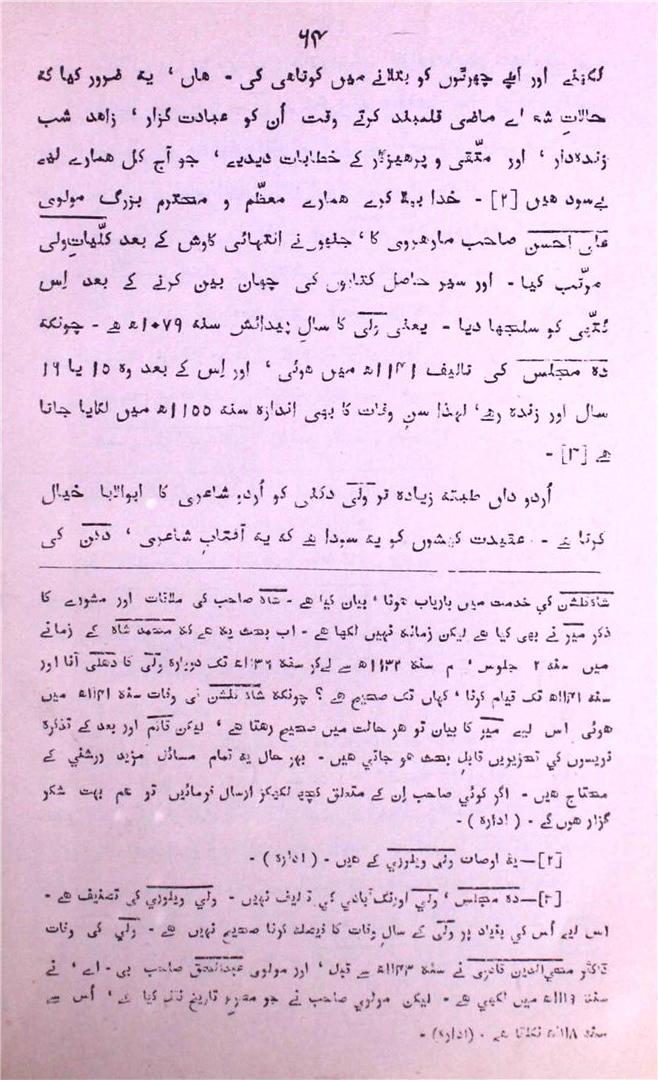 ۶۴
لکھنے اور اپنے چھوٹوں کو بتلانے میں کوتاھی کی - ھاں ‘ یہ ضرور کہا کہ
حالاتِ شعراے ماضی قلمبند کرتے وقت اُن کو عبادت گزار ‘ زاھد شب
زندہدار ‘ اور متّقی و پرھیزگار کے خطابات دیدیے ‘ جو آج کل ھمارے لیے
بےسود ھیں [۲] - خدا بھلا کرے ھمارے معظّم و محترم بزرگ مولوی
علی احسن صاحب مارھروی کا ‘ جنہوںنے انتہائی کاوش کے بعد کلّیاتِولی
مرتّب کیا - اور سیر حاصل کتابوں کی چھان بین کرنے کے بعد اِس
گتّھی کو سلجھا دیا - یعنی ولی کا سالِ پیدائش سنہ ۱۰۷۹ھ ھے - چونکہ
دہ مجلس کی تالیف ۱۱۴۱ھ میں ھوئی ‘ اور اِس کے بعد وہ ۱۵ یا ۱۶
سال اور زندہ رھے ‘ لہذا سنِ وفات کا بھی اندازہ سنہ ۱۱۵۵ھ میں لگایا جاتا
ھے [۳] -
اُردو داں طبقہ زیادہ تر ولی دکنی کو اُردو شاعری کا ابوالآبا خیال
کرتا ھے - عقیدت کیشوں کو یہ سودا ھے کہ یہ آفتابِ شاعری ‘ دکن کی
شاہگلشن کی خدمت میں باریاب ھونا ‘ بیان کیا ھے - شاہ صاحب کی ملاقات اور مشورے کا
ذکر میر نے بھی کیا ھے لیکن زمانہ نہیں لکھا ھے - اب بحث یہ ھے کہ محمد شاہ کے زمانے
میں سنہ ۲ جلوس ‘ م سنہ ۱۱۳۲ھ سے لےکر سنہ ۱۱۳۶ھ تک دوبارہ ولی کا دھلی آنا اور
سنہ ۱۱۴۱ھ تک قیام کرنا ‘ کہاں تک صحیح ھے ؟ چونکہ شاہ گلشن کی وفات سنہ ۱۱۴۱ھ میں
ھوئی اس لیے میر کا بیان تو ھر حالت میں صحیح رھتا ھے ‘ لیکن قائم اور بعد کے تذکرہ
نویسوں کی تحریریں قابلِ بحث ھو جاتی ھیں - بہر حال یہ تمام مسائل مزید روشنی کے
محتاج ھیں - اگر کوئی صاحب اِن کے متعلق کچھ لکھکر ارسال فرمائیں تو ھم بہت شکر
گزار ھوں گے - ( ادارہ ) -
[۲]—یہ اوصاف ولی ویلوری کے ھیں - ( ادارہ ) -
[۳]—دہ مجلس ‘ ولی اورنگآبادی کی تالیف نہیں - ولی ویلوری کی تصنیف ھے -
اس لیے اُس کی بنیاد پر ولی کے سالِ وفات کا فیصلہ کرنا صحیح نہیں ھے - ولی کی وفات
ڈاکٹر محیالدین قادری نے سنہ ۱۱۴۳ھ سے قبل ‘ اور مولوی عبدالحق صاحب بی - اے ‘ نے
سنہ ۱۱۱۹ھ میں لکھی ھے - لیکن مولوی صاحب نے جو مصرع تاریخ نقل کیا ھے ‘ اُس سے
سنہ نکلتا ھے - (ادارہ) -